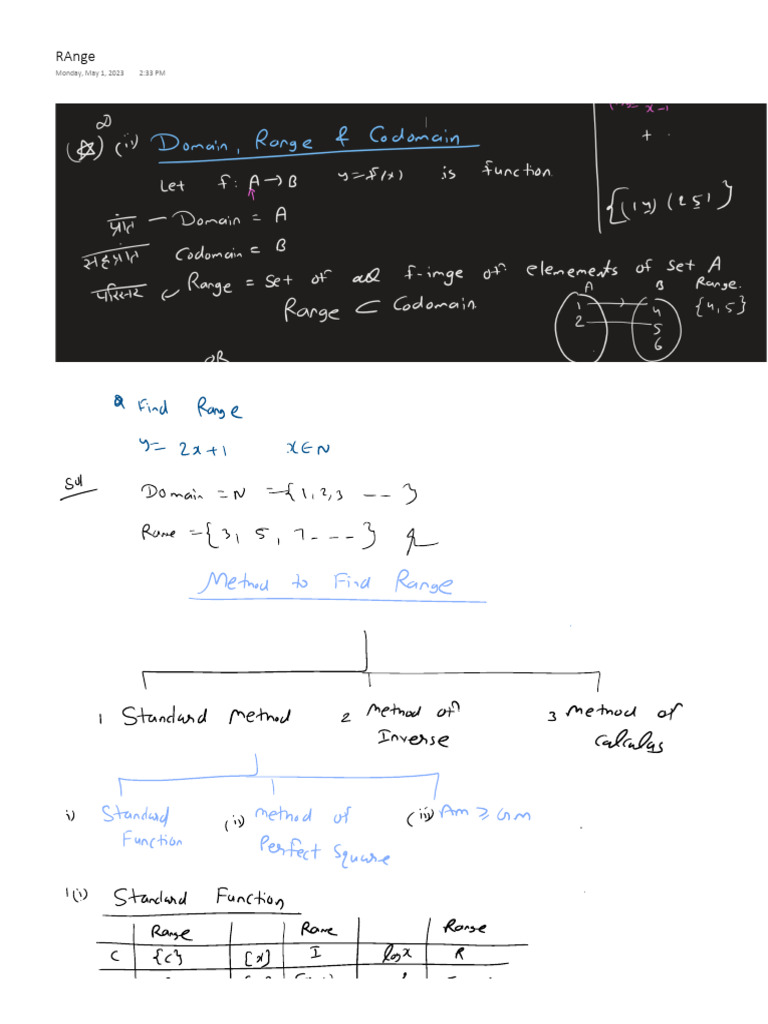 RAnge
Monday, May 1, 2023 2:33 PM
(ii) Domain, Range & Codomain
x-1
+
Let f: A→B y=f(x) is function
{(1 4) (2 5) }
प्रांत — Domain = A
सहप्रांत Codomain = B
परिसर Range = set of all f-imge of elemements of set A
Range ⊂ Codomain
A B Range
1 4 {4,5}
2 5
6
OR
Q Find Range
y= 2x+1 x∈N
Sol Domain = N = {1,2,3 -- }
Rane = {3, 5, 7 - - - }
Method to Find Range
1 Standard method 2 Method of Inverse 3 Method of Calculas
i) Standard Function (ii) method of Perfect Square (iii) Am ≥ Gm
1(i) Standard Function
Range Rane Range
C {C} [x] I logx R